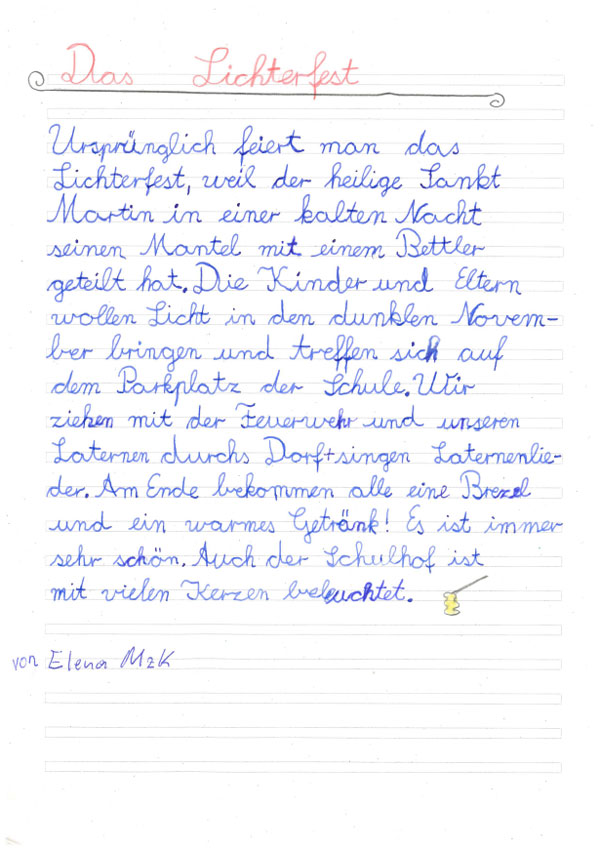 Das Lichterfest
Ursprünglich feiert man das
Lichterfest, weil der heilige Sankt
Martin in einer kalten Nacht
seinen Mantel mit einem Bettler
geteilt hat. Die Kinder und Eltern
wollen Licht in den dunklen Novem-
ber bringen und treffen sich auf
dem Parkplatz der Schule. Wir
ziehen mit der Feuerwehr und unseren
Laternen durchs Dorf+singen Laternenlie-
der. Am Ende bekommen alle eine Brezel
und ein warmes Getränk! Es ist immer
sehr schön. Auch der Schulhof ist
mit vielen Kerzen beleuchtet.
von Elena MzK